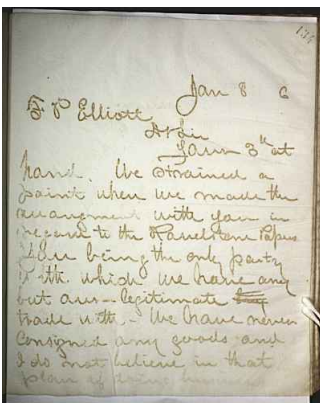 Jan 8 6
F P Elliott
Dr Sir
Yours 3rd at
hand. We strained a
point when we made the
arrangment with you in
regard to the Ravelstone Papers
You being the only party
with which we have any
but our legitimate
trade with. We have never
consigned any goods and
I do not believe in that
plan of doing business